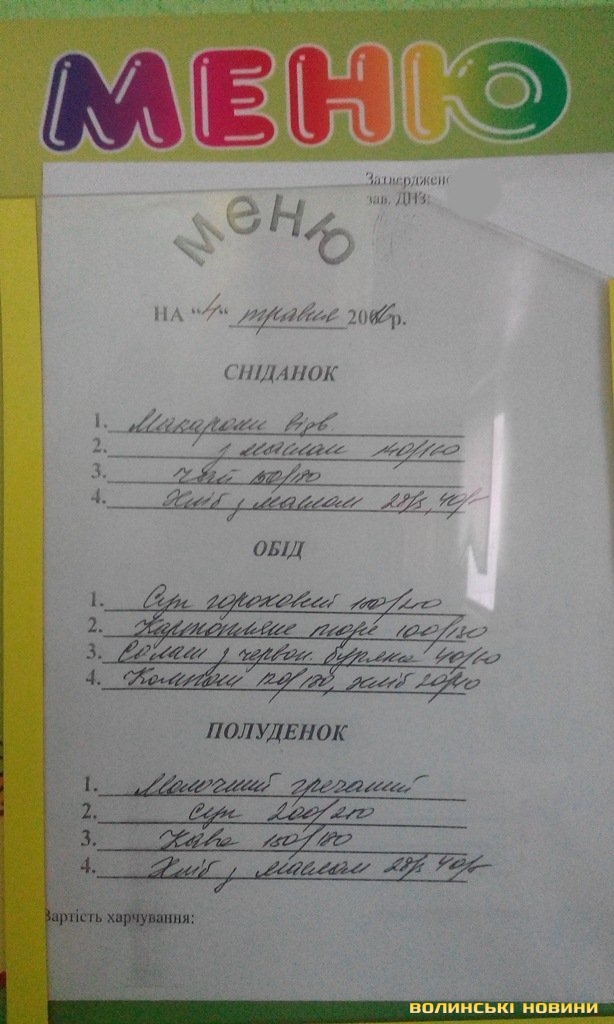 МЕНЮ
Затверджено
зав. ДНЗ:
меню
НА "4" травня 2016 р.
СНІДАНОК
1. Макарони відв.
2. з маслом 140/160
3. Чай 150/180
4. Хліб з маслом 28/5, 40/5
ОБІД
1. Суп гороховий 150/250
2. Картопляне пюре 100/130
3. Салат з червон. буряка 40/60
4. Компот 150/180, хліб 20/40
ПОЛУДЕНОК
1. Молочний гречаний
2. суп 200/250
3. Кава 150/180
4. Хліб з маслом 28/5 40/5
Вартість харчування:
ВОЛИНСЬКІ НОВИНИ